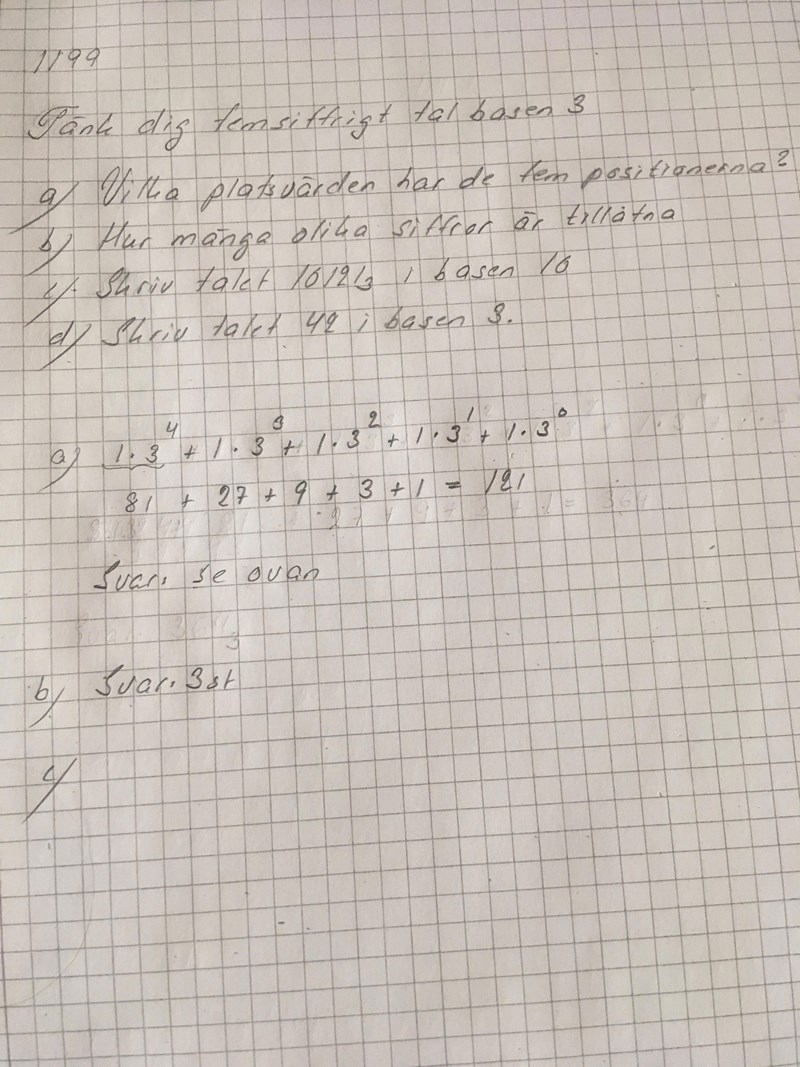 1199
Tänk dig femsiffrigt tal basen 3
a) Vilka platsvärden har de fem positionerna?
b) Hur många olika siffror är tillåtna
c) Skriv talet 10121₃ i basen 10
d) Skriv talet 42 i basen 3.
a) 1·3⁴ + 1·3³ + 1·3² + 1·3¹ + 1·3⁰
81 + 27 + 9 + 3 + 1 = 121
Svar. se ovan
b) Svar. 3st
c)